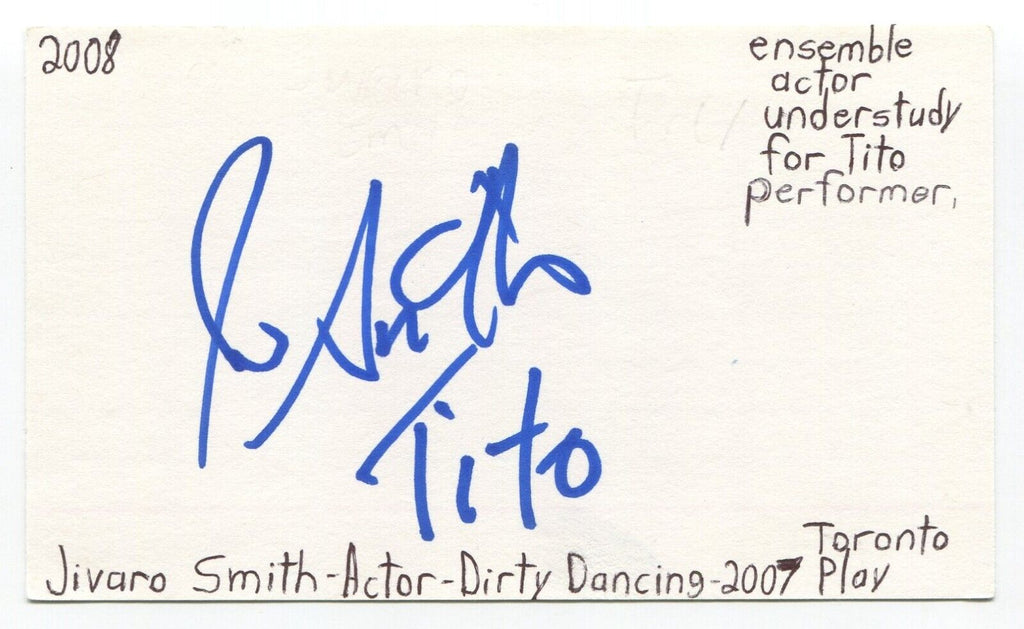 2008
ensemble
actor
understudy
for Tito
performer,
Smith
Tito
Toronto
Jivaro Smith-Actor-Dirty Dancing-2007 Play